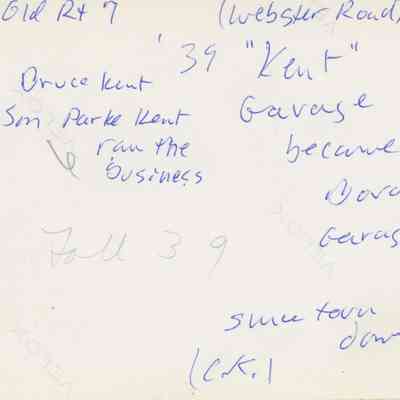 Old Rt 7 (Webster Road)
'39 "Kent"
Garage
became
Garag
Bruce Kent
Son Parke Kent
ran the
business
Fall 39
since torn
down
(C.K.)